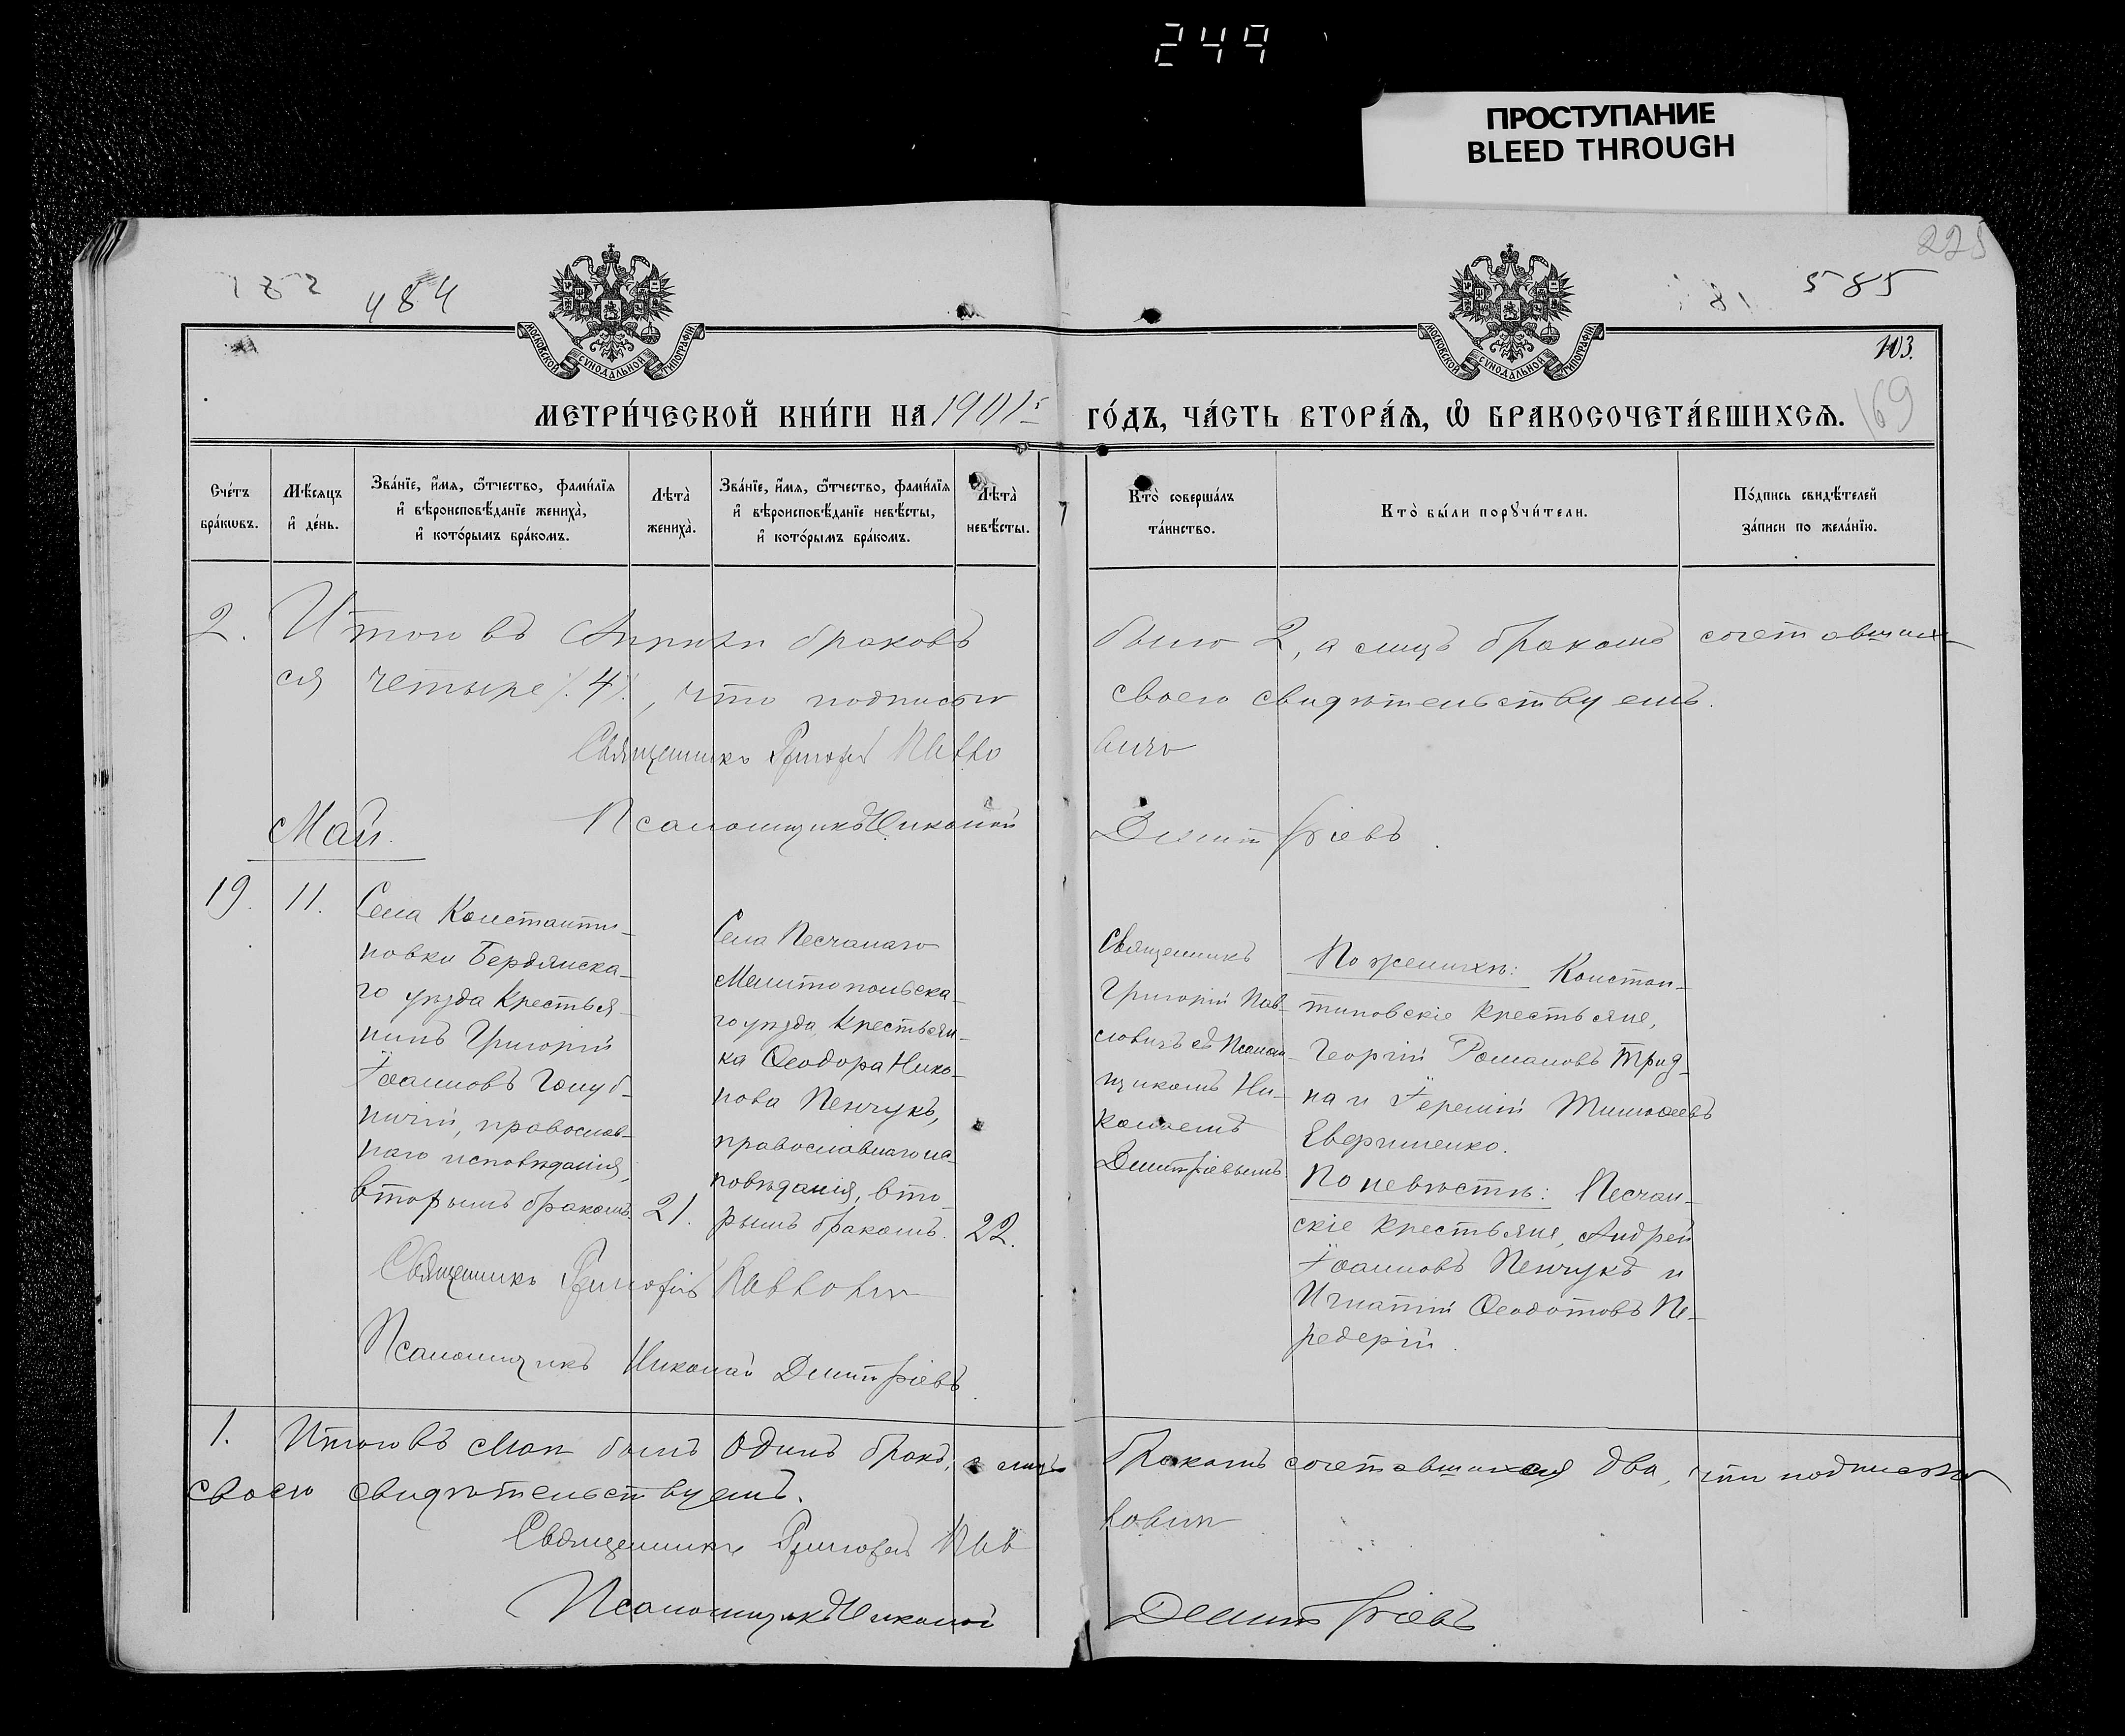 249
ПРОСТУПАНИЕ
BLEED THROUGH
225
484
585
МОСКОВСКОЙ СѴНОДАЛЬНОЙ ТИПОГРАФІИ
МОСКОВСКОЙ СѴНОДАЛЬНОЙ ТИПОГРАФІИ
103.
169
МЕТРИ́ЧЕСКОЙ КНИ́ГИ НА 1901 ГО́ДЪ, ЧА́СТЬ ВТОРА́Ѧ, Ѿ БРАКОСОЧЕТА́ВШИХСѦ.
Сче́тъ бра́кѡвъ.
Мѣ́сѧцъ и҆ де́нь.
Зва́нїе, и҆́мѧ, ѻ҆́тчество, фами́лїѧ и҆ вѣроисповѣ́данїе жениха̀, и҆ кото́рымъ бра́комъ.
Лѣта̀ жениха̀.
Зва́нїе, и҆́мѧ, ѻ҆́тчество, фами́лїѧ и҆ вѣроисповѣ́данїе невѣ́сты, и҆ кото́рымъ бра́комъ.
Лѣта̀ невѣ́сты.
Кто̀ соверша́лъ та́инство.
Кто̀ бы́ли порꙋчи́тели.
По́дпись свидѣ́телей за́писи по жела́нїю.
2. Итого въ Апрѣлѣ браковъ было 2, а лицъ бракомъ сочетавших-
ся четыре /4/, что подписью своею свидѣтельствуемъ.
Священникъ Григорій Павловичъ
Псаломщикъ Николай Димитріевъ.
Май.
19. 11.
Села Константи-
новки Бердянска-
го уѣзда крестья-
нинъ Григорій
Іоанновъ Голуб-
ничій, православ-
наго исповѣданія,
вторымъ бракомъ. 21.
Села Песчанаго
Мелитопольска-
го уѣзда крестьян-
ка Ѳеодора Нико-
нова Пенчукъ,
православнаго ис-
повѣданія, вто-
рымъ бракомъ. 22.
Священникъ
Григорій Пав-
ловичъ съ Псалом-
щикомъ Ни-
колаемъ
Димитріевымъ.
По женихѣ: Констан-
тиновскіе крестьяне,
Георгій Романовъ
и Іеремій Тимоѳеевъ
По невѣстѣ: Песчан-
скіе крестьяне, Андрей
Іоанновъ Пенчукъ и
Игнатій Ѳеодотовъ Пе-
редерій.
Священникъ Григорій Павловичъ
Псаломщикъ Николай Димитріевъ.
1. Итого въ Маѣ былъ одинъ бракъ, а лицъ бракомъ сочетавшихся два, что подписью
своею свидѣтельствуемъ.
Священникъ Григорій Павловичъ
Псаломщикъ Николай Димитріевъ